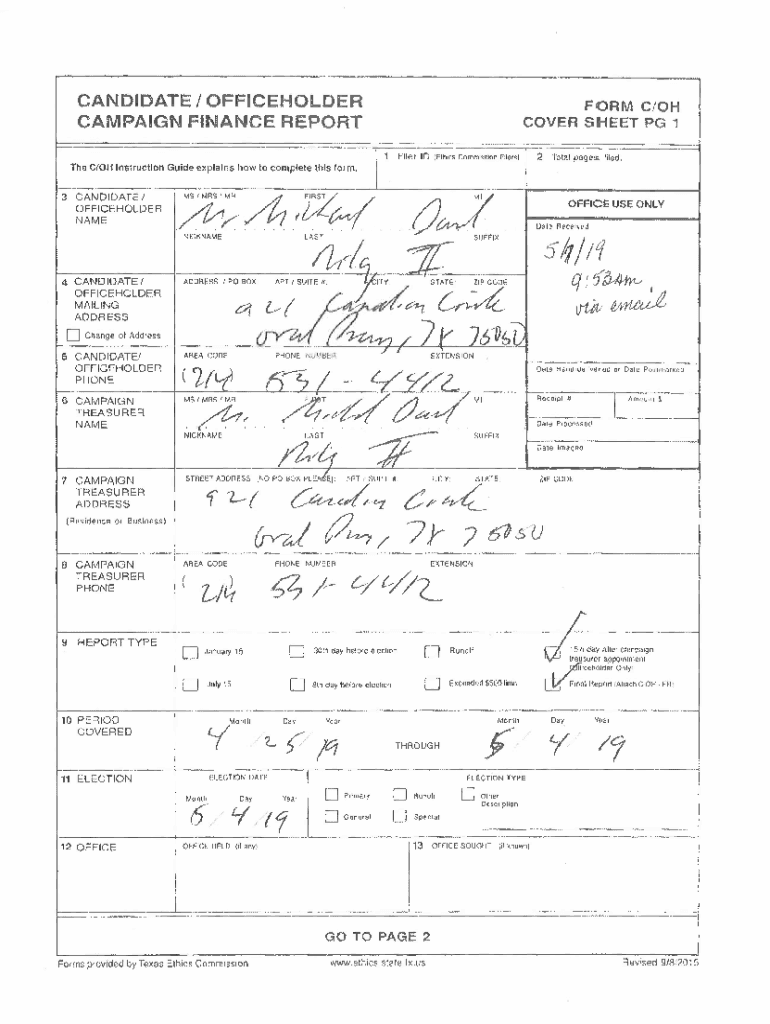 CANDIDATE / OFFICEHOLDER
CAMPAIGN FINANCE REPORT
FORM C/OH
COVER SHEET PG 1
The C/OH Instruction Guide explains how to complete this form.
1 Filer ID (Ethics Commission Filers)
2 Total pages filed:
3 CANDIDATE / OFFICEHOLDER NAME
MS / MRS / MR FIRST MI
Mr Michael David
NICKNAME LAST SUFFIX
II
OFFICE USE ONLY
Date Received
5/7/19
9:53am
via email
4 CANDIDATE / OFFICEHOLDER MAILING ADDRESS
Change of Address
ADDRESS / PO BOX APT / SUITE #; CITY; STATE; ZIP CODE
921 Canadian
TX 75050
5 CANDIDATE/ OFFICEHOLDER PHONE
AREA CODE PHONE NUMBER EXTENSION
(214) 531-4412
Date Hand-delivered or Date Postmarked
6 CAMPAIGN TREASURER NAME
MS / MRS / MR FIRST MI
Mr. Michael David
NICKNAME LAST SUFFIX
II
Receipt # Amount $
Date Processed
Date Imaged
7 CAMPAIGN TREASURER ADDRESS
(Residence or Business)
STREET ADDRESS (NO PO BOX PLEASE); APT / SUITE #; CITY; STATE; ZIP CODE
921 Canadian
TX 75050
8 CAMPAIGN TREASURER PHONE
AREA CODE PHONE NUMBER EXTENSION
(214) 531-4412
9 REPORT TYPE
January 15 30th day before election Runoff 15th day after campaign treasurer appointment (Officeholder Only)
July 15 8th day before election Exceeded $500 limit Final Report (Attach C/OH - FR)
10 PERIOD COVERED
Month Day Year Month Day Year
4 / 25 / 19 THROUGH 5 / 4 / 19
11 ELECTION
ELECTION DATE ELECTION TYPE
Month Day Year
5 / 4 / 19
Primary Runoff Other Description
General Special
12 OFFICE
OFFICE HELD (if any)
13 OFFICE SOUGHT (if known)
GO TO PAGE 2
Forms provided by Texas Ethics Commission www.ethics.state.tx.us Revised 9/8/2015